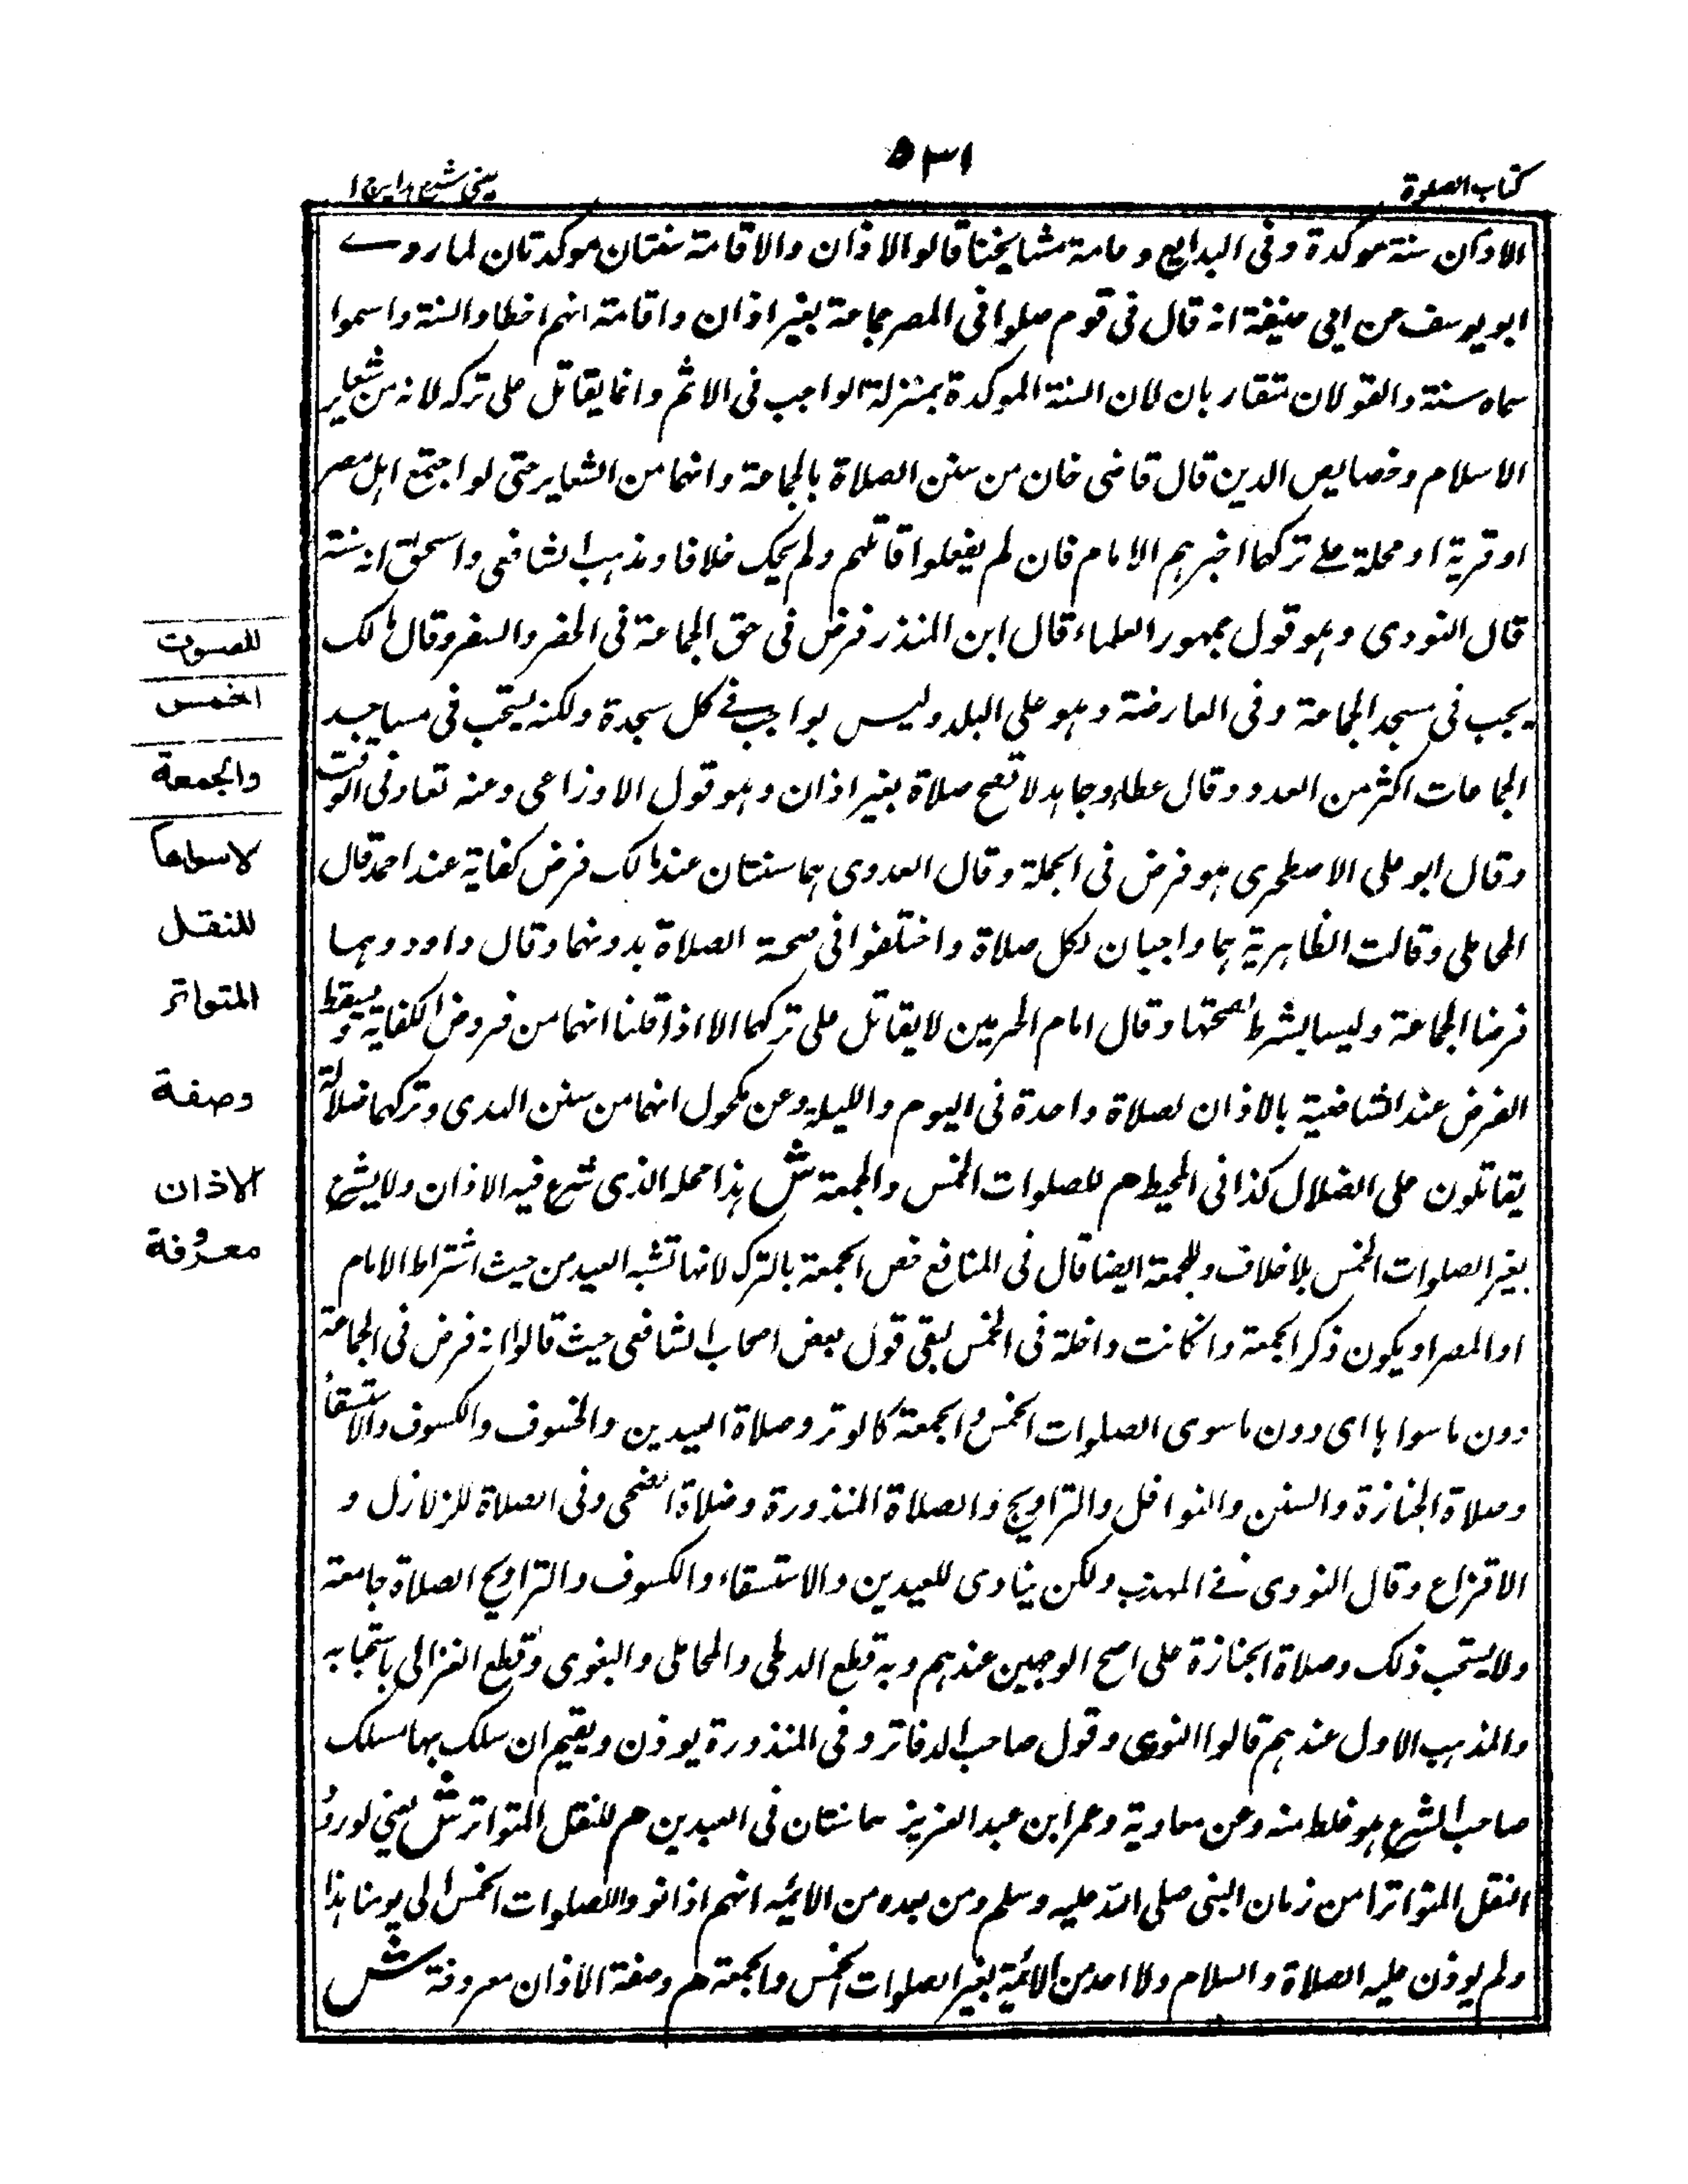 كتاب الصلوة
٥٣١
عينى شرح هدايه ج ١
الاذان سنة موكدة وفى البدايع وعامة مشايخنا قالوا الاذان والاقامة سنتان موكدتان لما روى
ابو يوسف عن ابى حنيفة انه قال فى قوم صلوا فى المصر جماعة بغير اذان واقامة انهم اخطاوا السنة واسموا
سماه سنة والقولان متقاربان لان السنة الموكدة بمنزلة الواجب فى الاثم وانما يقاتل على تركه لانه من شعاير
الاسلام وخصايص الدين قال قاضى خان من سنن الصلاة بالجماعة وانهما من الشعاير حتى لو اجتمع اهل مصر
او قرية او محلة على تركها اخبرهم الامام فان لم يفعلوا قاتلهم ولم يحك خلافا ومذهب الشافعى واسحق انه سنة
قال النووى وهو قول جمهور العلماء قال ابن المنذر فرض فى حق الجماعة فى الحضر والسفر وقال مالك
يجب فى مسجد الجماعة وفى العارضة وهو على البلد وليس بواجب فى كل سجدة ولكنه يستحب فى مساجد
الجماعات اكثر من العدد وقال عطاء ومجاهد لا تصح صلاة بغير اذان وهو قول الاوزاعى وعنه تعاد فى الوقت
وقال ابو على الاصطخرى هو فرض فى الجملة وقال العدوى هما سنتان عند مالك فرض كفاية عند احمد قال
المحاملى وقالت الظاهرية هما واجبان لكل صلاة واختلفوا فى صحة الصلاة بدونهما وقال داود وهما
فرضا الجماعة وليسا بشرط لصحتها وقال امام الحرمين لا يقاتل على تركهما الا اذا قلنا انهما من فروض الكفاية ويسقط
الفرض عند الشافعية بالاذان لصلاة واحدة فى اليوم والليلة وعن مكحول انهما من سنن الهدى وتركهما ضلالة
يقاتلون على الضلال كذا فى المحيط هم للصلوات الخمس والجمعة ش هذا محله الذى شرع فيه الاذان ولا يشرع
بغير الصلوات الخمس بلا خلاف وللجمعة ايضا قال فى المنافع خص الجمعة بالترك لانها تشبه العيد من حيث اشتراط الامام
او المصر او يكون ذكر الجمعة وان كانت داخلة فى الخمس لبقى قول بعض اصحاب الشافعى حيث قالوا انه فرض فى الجماعة
دون ما سواها اى دون ما سوى الصلوات الخمس والجمعة كالوتر وصلاة العيدين والخسوف والكسوف والاستسقاء
وصلاة الجنازة والسنن والنوافل والتراويح والصلاة المنذورة وصلاة الضحى وفى الصلاة للزلازل و
الافزاع وقال النووى فى المهذب ولكن ينادى للعيدين والاستسقاء والكسوف والتراويح الصلاة جامعة
ولا يستحب ذلك وصلاة الجنازة على اصح الوجهين عندهم وبه قطع الدلى والمحاملى والبغوى وقطع الغزالى باستحبابه
والمذهب الاول عندهم قالوا النووى وقول صاحب الدفاتر وفى المنذورة يوذن ويقيم ان سلك بها مسلك
صاحب الشرع هو غلط منه وعن معاوية وعمر ابن عبد العزيز سانتان فى العيدين هم للنقل المتواتر ش يعنى لورود
النقل المتواترا من زمان النبى صلى الله عليه وسلم ومن بعده من الايمه انهم اذانوا للصلوات الخمس الى يومنا هذا
ولم يوذن عليه الصلاة والسلام ولا احد من الائمة بغير الصلوات الخمس والجمعة هم وصفة الاذان معروفة ش
للصلوت
الخمس
والجمعة
لاسواها
للنقل
المتواتر
وصفة
الاذان
معروفة